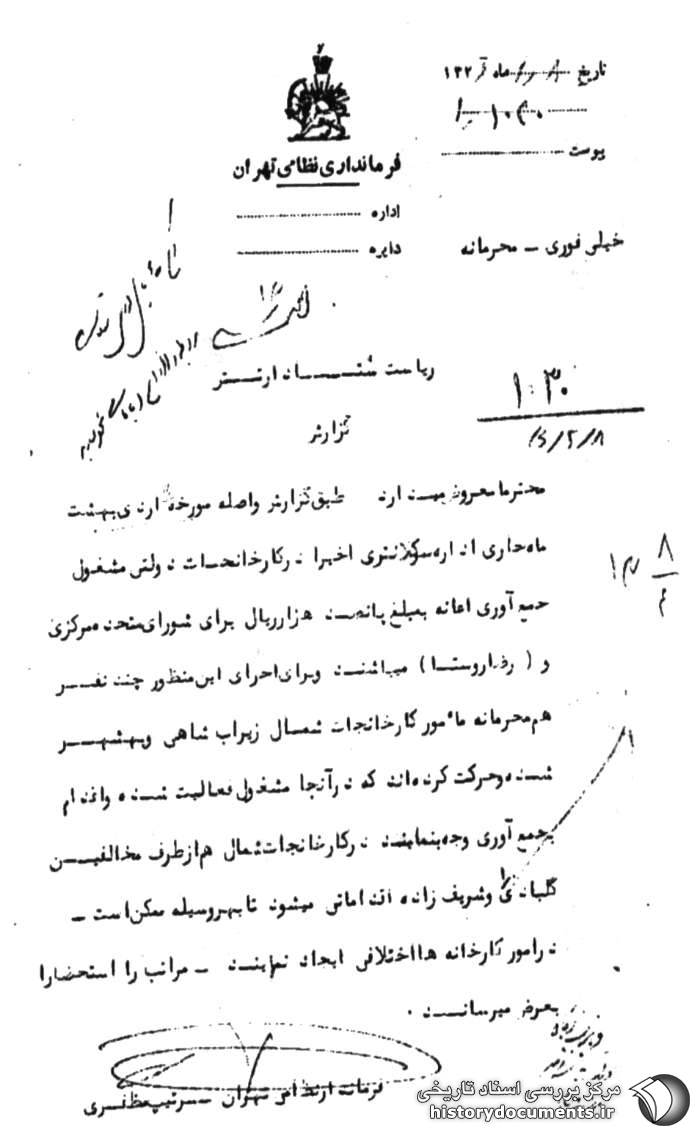 تاریخ ۸/۲ ماه ۱۳۲
پیوست
فرمانداری نظامی تهران
اداره
دایره
خیلی فوری - محرمانه
ریاست ستاد ارتش
گزارش
۱:۳۰
۲/۸
محترما معروض میدارد طبق گزارش واصله مورخه اردیبهشت
ماه جاری اداره کلانتری اخیرا در کارخانجات دولتی مشغول
جمع آوری اعانه بمبلغ پانصد هزار ریال برای شورای متحده مرکزی
و ( رضا روستا ) میباشند و برای اجرای این منظور چند نفر
هم محرمانه مأمور کارخانجات شمال زیراب شاهی و بهشهر
شده و حرکت کرده‌اند که در آنجا مشغول فعالیت شده و اقدام
بجمع آوری وجه بنمایند در کارخانجات شمال هم از طرف مخالفین
گلبادی و شریف زاده اقداماتی میشود تا بهر وسیله ممکن است -
در امور کارخانه ها اختلافی ایجاد نمایند - مراتب را استحضارا
بعرض میرساند .
فرماندار نظامی تهران - سرتیپ مظفری
مرکز بررسی اسناد تاریخی
historydocuments.ir